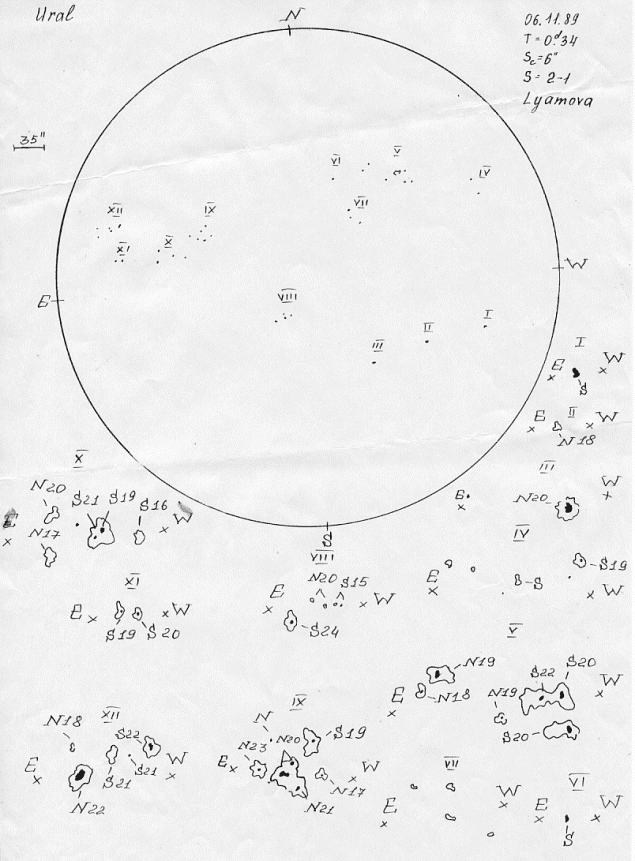 Ural
N
06.11.89
T = 0.ᵈ34
Sc = 6"
S = 2-1
Lyamova
35"
VI
V
IV
VII
XII
IX
XI
X
W
E
VIII
I
II
III
S
I
E W
S
II
E W
N18
III
W
N20
E
X
N20 S21 S19 S16
E W
N17
VIII
N20 S15
E W
S24
IV
S19
E S
W
XI
E W
S19 S20
V
N19 S22 S20
W
E N18 N19
S20
XII
N18 S22
E S21 W
S21
N22
IX
N N20 S19
N23
E W
N17
N21
VII
W
E
VI
E W
S